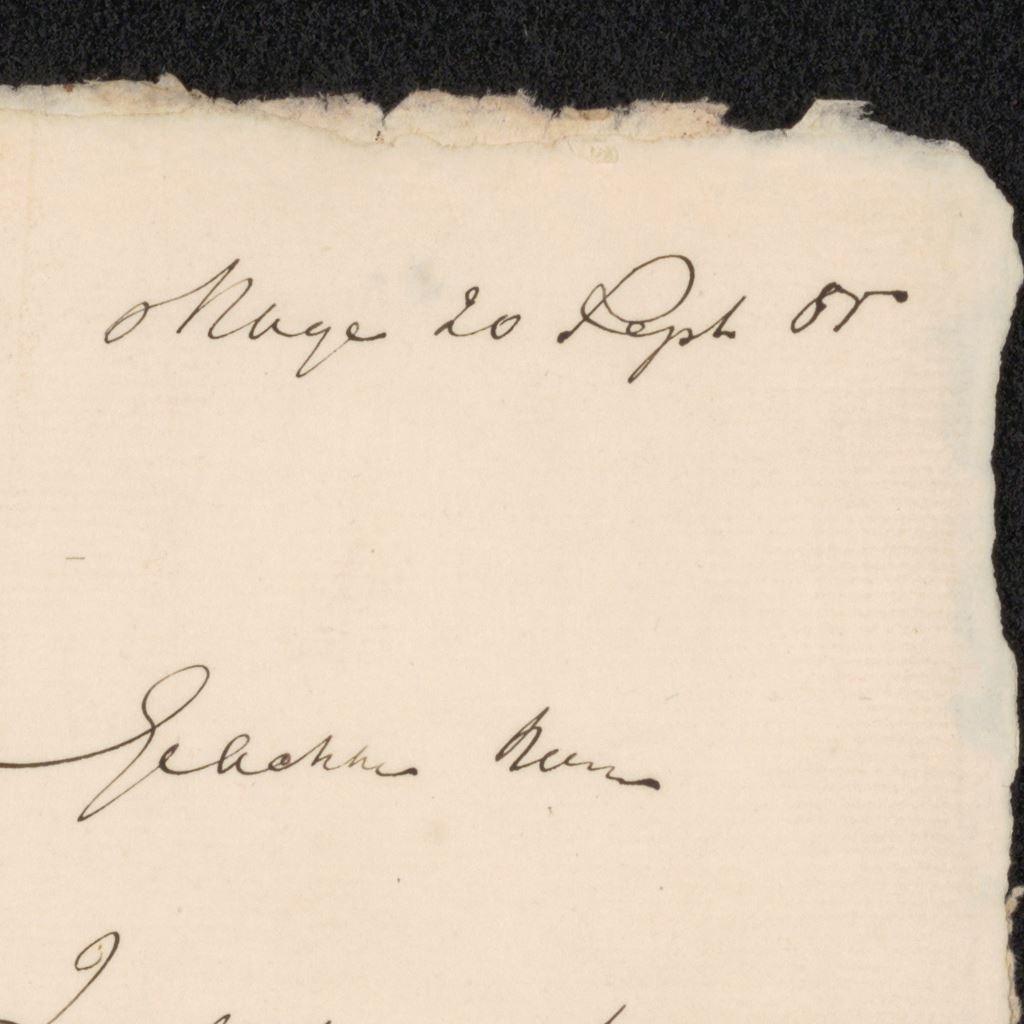 sHage 20 Sept 85
Geachte Heer